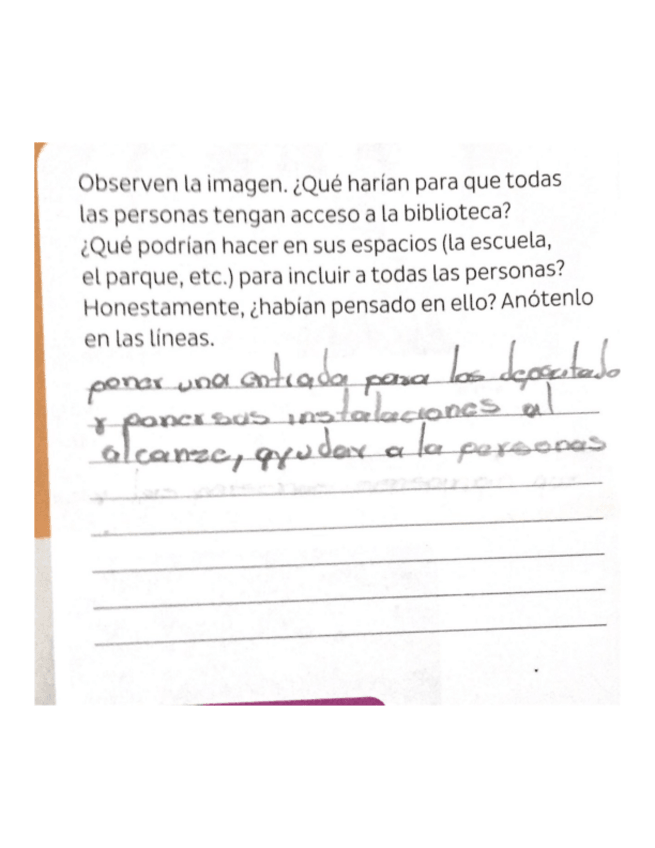 Observen la imagen. ¿Qué harían para que todas
las personas tengan acceso a la biblioteca?
¿Qué podrían hacer en sus espacios (la escuela,
el parque, etc.) para incluir a todas las personas?
Honestamente, ¿habían pensado en ello? Anótenlo
en las líneas.
poner una entrada para los
y poner sus instalaciones al
alcanze, ayudar a la personas